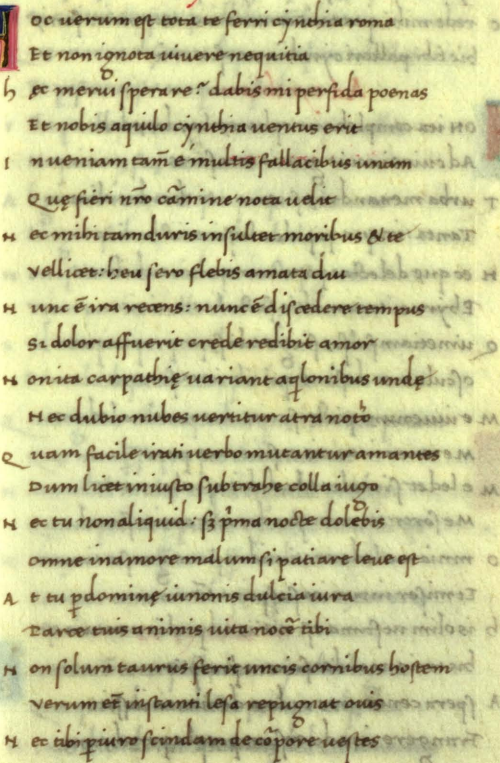 Hoc verum est tota te ferri cynthia roma
Et non ignota vivere neqitia
hęc merui sperare? dabis mi perfida poenas
Et nobis aquilo cynthia ventus erit
Inveniam tam̄ ē multis fallacibus unam
Quę fieri nr̄o cārmine nota velit
Nec mihi tam duris insultet moribus & te
vellicet: heu sero flebis amata diu
Nunc ē ira recens: nunc ē discedere tempus
Si dolor affuerit crede redibit amor
Non ita carpathię variant aqilonibus undę
Nec dubio nubes vertitur atra noto
Quam facile irati verbo mutantur amantes
Dum licet iniusto subtrahe colla iugo
Nec tu non aliquid: sꝫ pima nocte dolebis
omne in amore malum si patiare leve est
At tu ꝑ dominę iunonis dulcia iura
Parce tuis animis vita nocē tibi
Non solum taurus ferit uncis cornibus hostem
verum et̄ instanti lesa repugnat ovis
Nec tibi ꝑiuro scindam de cōrpore vestes